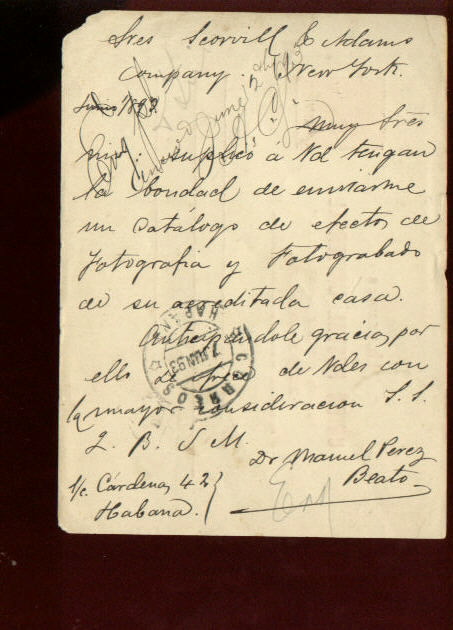 Sres Scovill & Adams
Company. New York.
Junio 1893
muy Sres
mios: suplico á Vd tengan
la bondad de enviarme
un Catálogo de efectos de
fotografia y Fotograbado
de su acreditada casa.
Anticipandole gracias por
ello de Vdes con
la mayor consideracion S. S.
Q. B. S M.
Dr Manuel Perez
Beato
s/c. Cárdenas 42
Habana.
CORREOS
7 JUN 93
HABANA